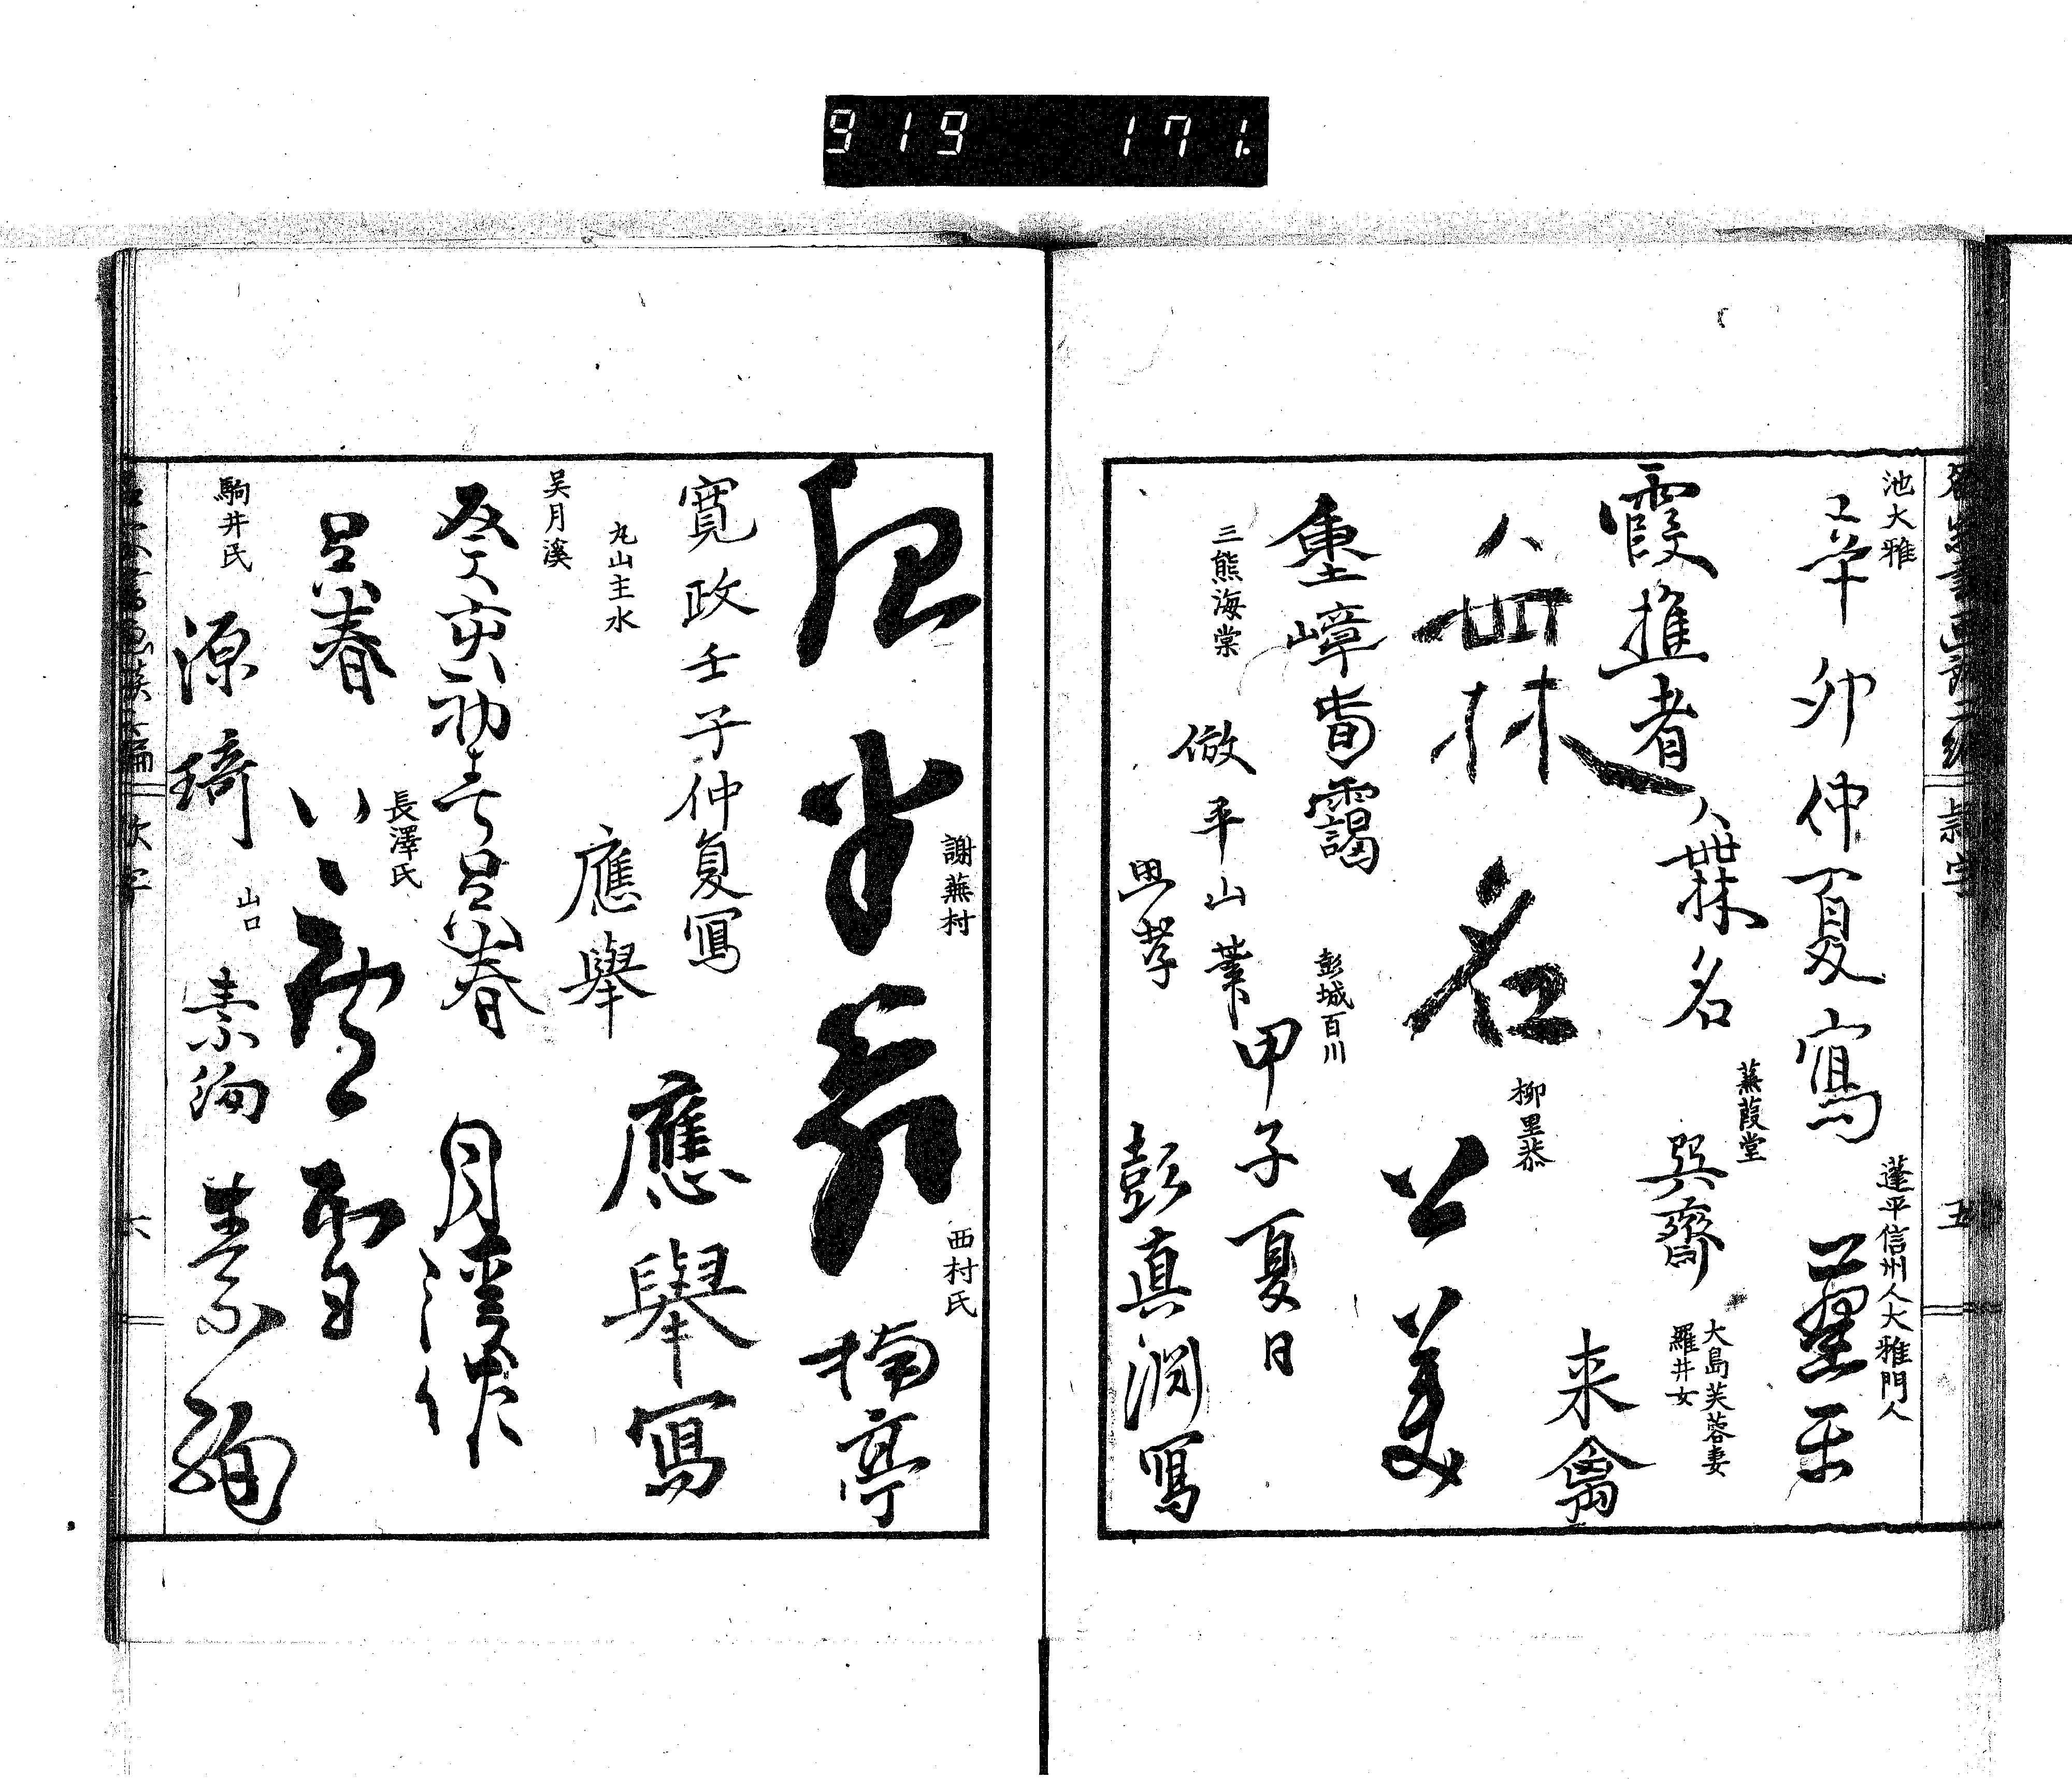 919 171.
池大雅
辛卯仲夏寫
蓬平信州人大雅門人
霞樵者
無名
蒹葭堂
巽齋
大島芙蓉妻
羅井女
来禽
無名
柳里恭
公美
重嶂
靄
彭城百川
甲子夏日
三熊海棠
倣平山
思孝
彭真淵寫
五
謝蕪村
夜半翁
西村氏
楠亭
寬政壬子仲夏寫
丸山主水
應舉
應舉寫
吴月溪
癸亥初春呉春
月溪作
呉春
長澤氏
蘆雪
駒井氏
源琦
山口
素絢
素絢
六